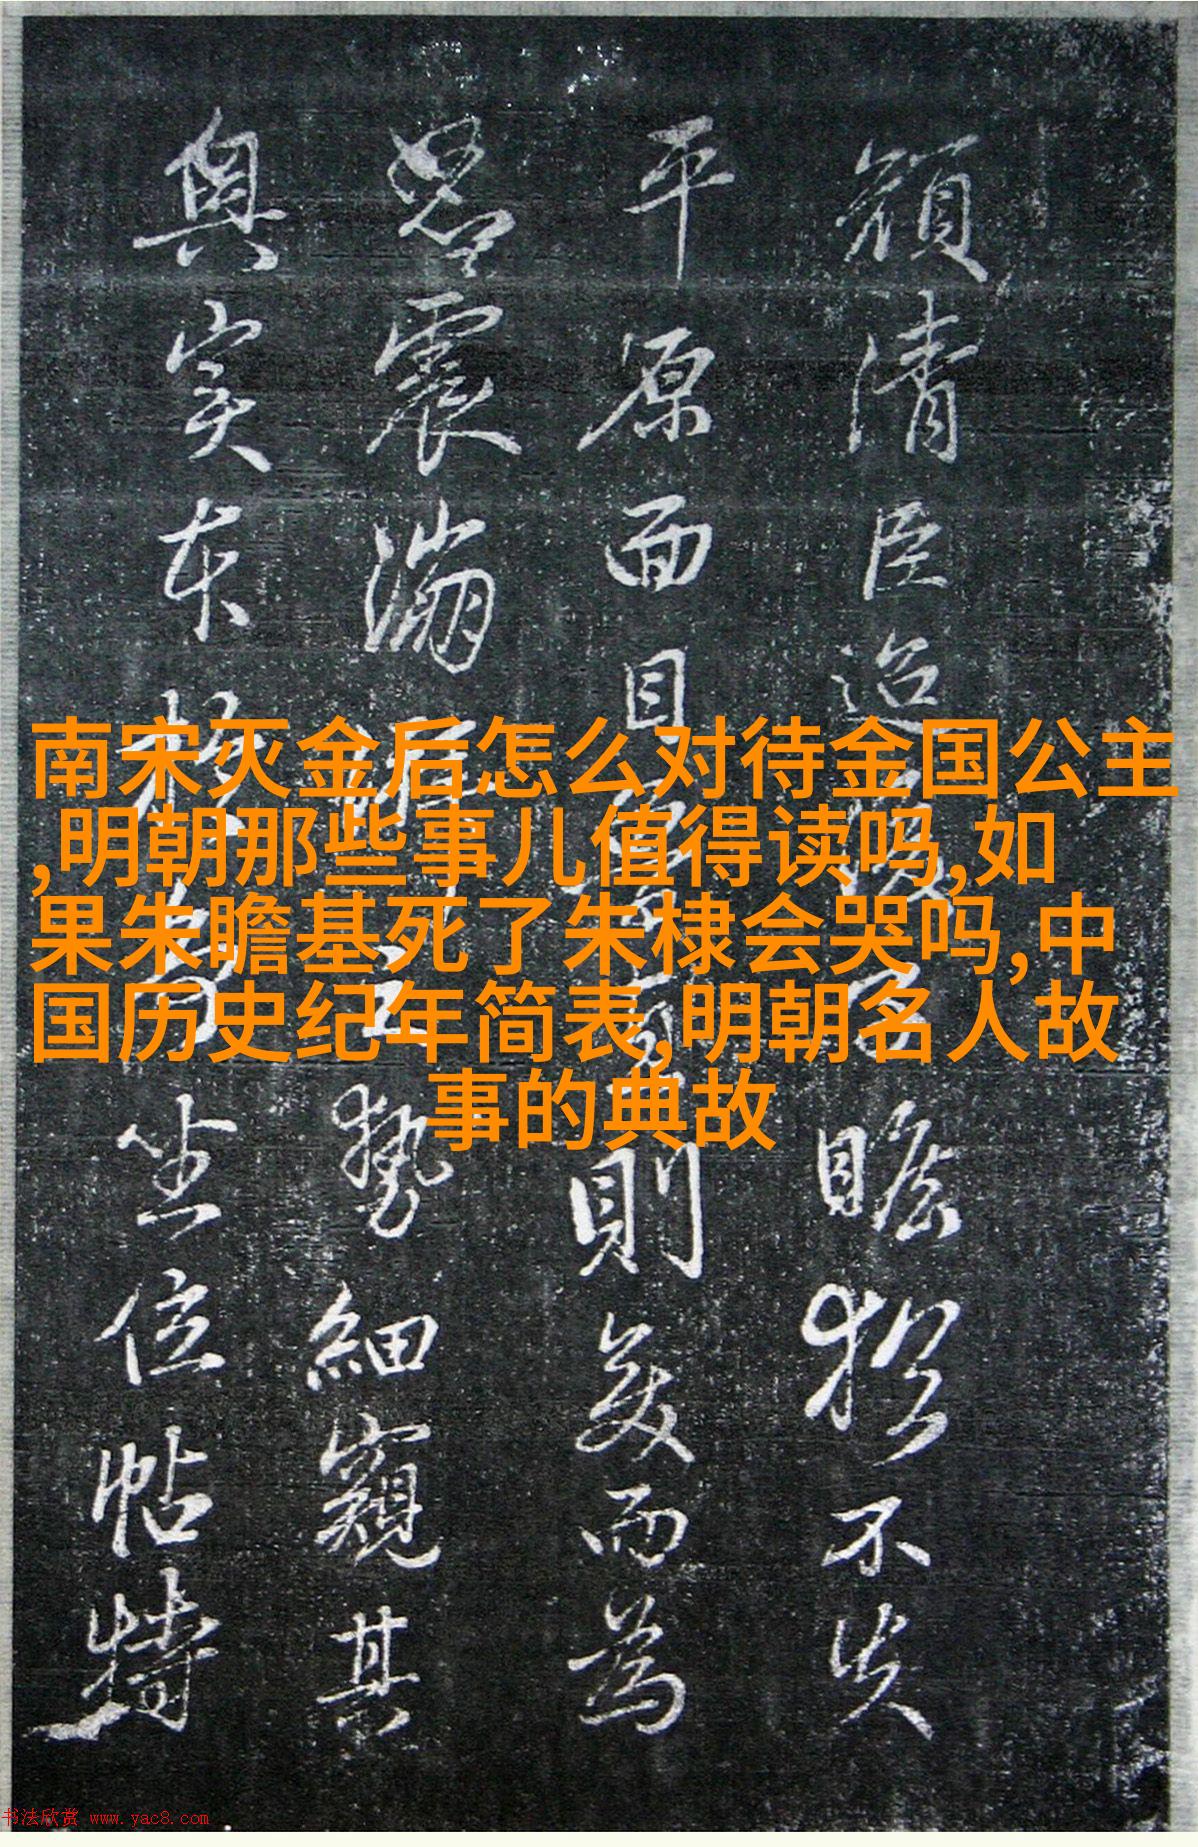 顏清臣迨瞻猶不失
平原面目則美而為
震勢細窺其
奥实本坐位帖特
南宋灭金后怎么对待金国公主
,明朝那些事儿值得读吗,如
果朱瞻基死了朱棣会哭吗,中
国历史纪年简表,明朝名人故
事的典故
书法欣赏 www.yac8.com